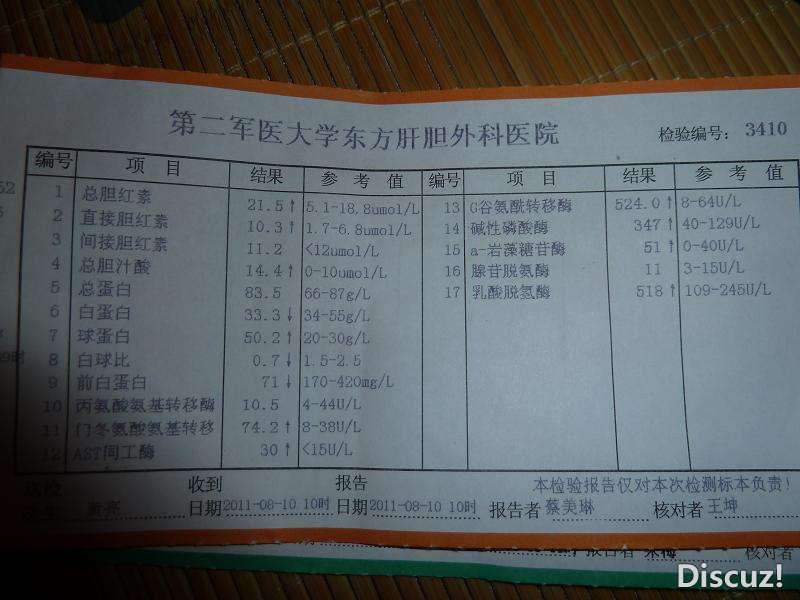 第二军医大学东方肝胆外科医院
检验编号: 3410
编号 项 目 结果 参 考 值 编号 项 目 结果 参 考 值
1 总胆红素 21.5↑ 5.1-18.8umol/L 13 G谷氨酰转移酶 524.0↑ 8-64U/L
2 直接胆红素 10.3↑ 1.7-6.8umol/L 14 碱性磷酸酶 347↑ 40-129U/L
3 间接胆红素 11.2 <12umol/L 15 a-岩藻糖苷酶 51↑ 0-40U/L
4 总胆汁酸 14.4↑ 0-10umol/L 16 腺苷脱氨酶 11 3-15U/L
5 总蛋白 83.5 66-87g/L 17 乳酸脱氢酶 518↑ 109-245U/L
6 白蛋白 33.3↓ 34-55g/L
7 球蛋白 50.2↑ 20-30g/L
8 白球比 0.7↓ 1.5-2.5
9 前白蛋白 71↓ 170-420mg/L
10 丙氨酸氨基转移酶 10.5 4-44U/L
11 门冬氨酸氨基转移 74.2↑ 8-38U/L
12 AST同工酶 30↑ <15U/L
收到 报告 本检验报告仅对本次检测标本负责!
日期 2011-08-10 10时 日期 2011-08-10 10时 报告者 蔡美琳 核对者 王坤
报告者 核对者
Discuz!